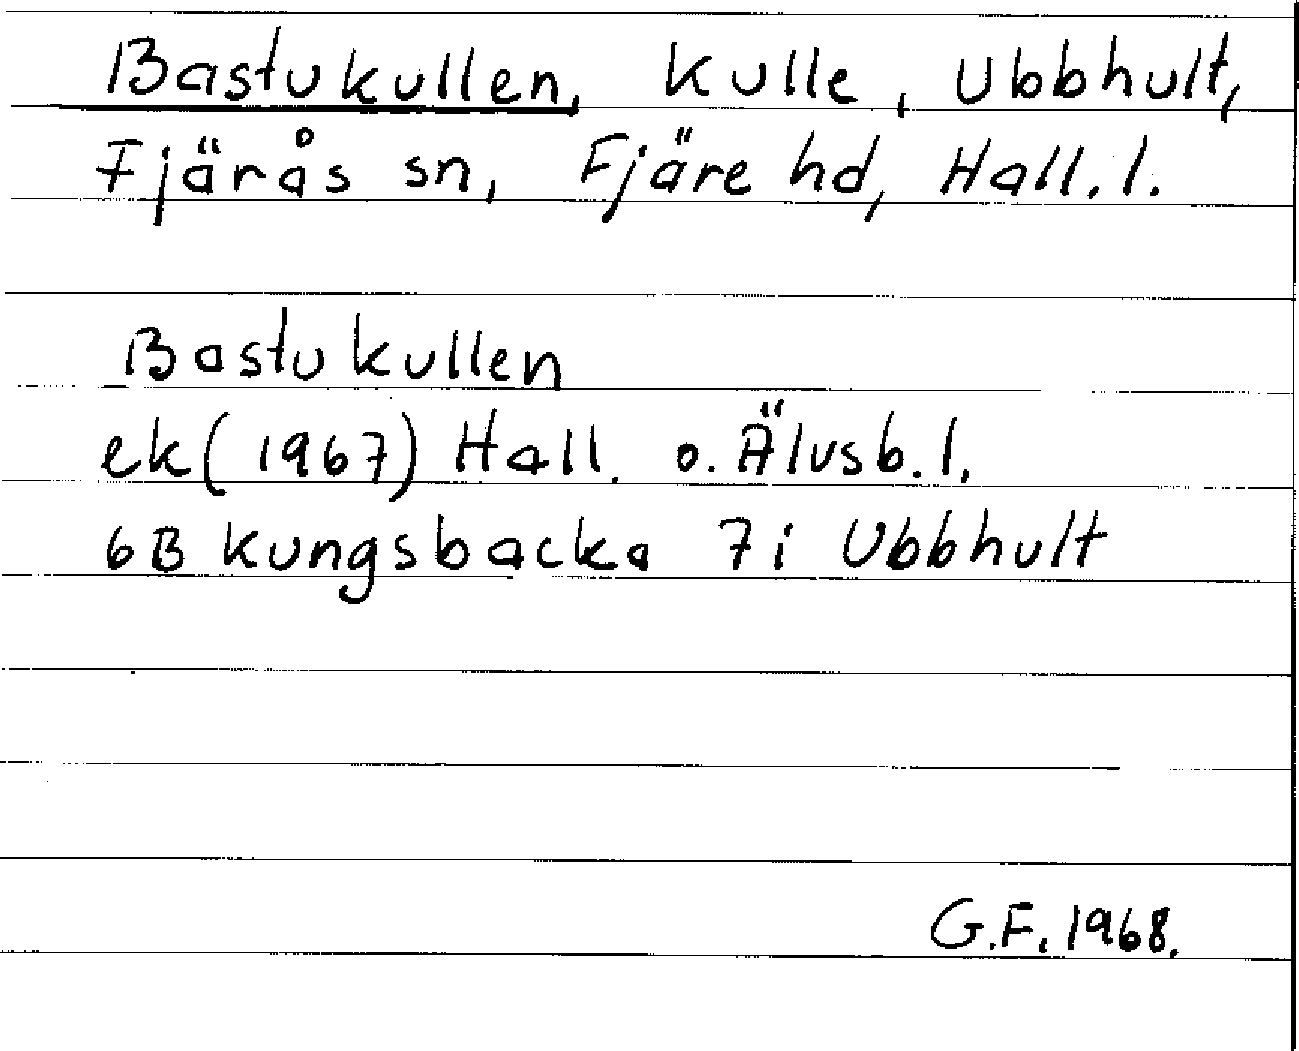 Bastukullen, kulle, Ubbhult,
Fjärås sn, Fjäre hd, Hall. l.
Bastukullen
ek (1967) Hall. o. Älvsb. l.
6B Kungsbacka 7i Ubbhult
G.F. 1968.